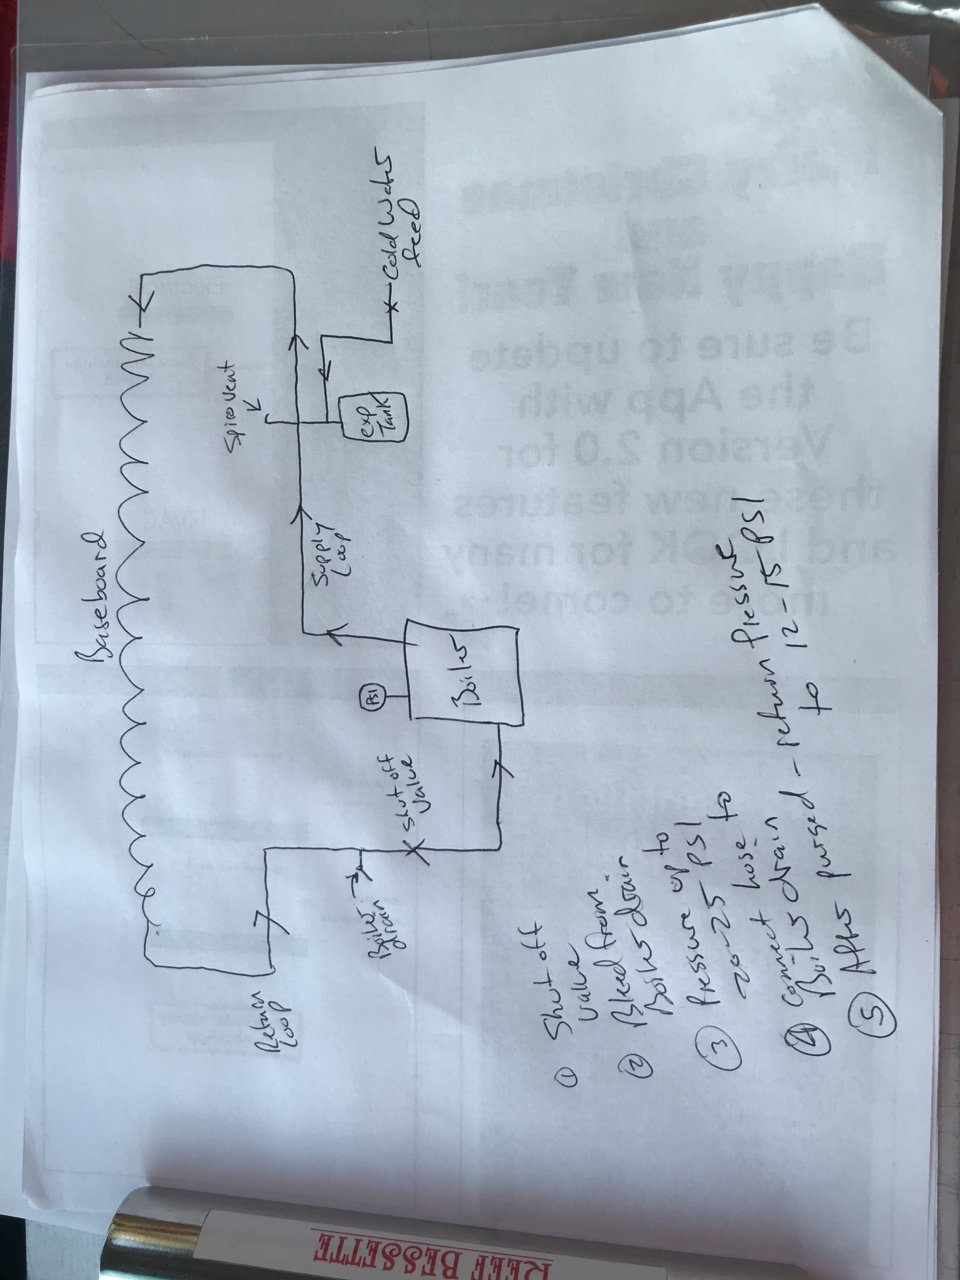 Baseboard
Spirovent
Cold Water
feed
exp
Tank
Supply
Loop
PSI
Boiler
Shut off
Valve
Boiler
drain
Return
Loop
① Shut off
Valve
② Bleed from
Boiler drain
③ Pressure up to
20-25 PSI
④ Connect hose to
Boiler drain
⑤ After purged - return Pressure
to 12-15 PSI
REEF BESSETTE
Happy New Year!
Be sure to update
the App with
Version 2.0 for
these new features
and LOOK for many
more to come!